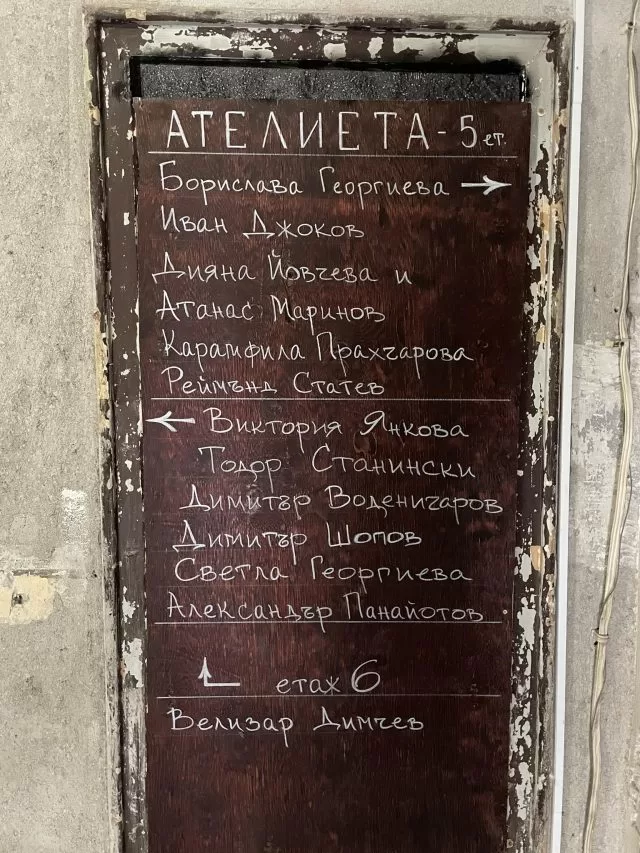 АТЕЛИЕТА - 5 ет.
Борислава Георгиева →
Иван Джоков
Дияна Йовчева и
Атанас Маринов
Карамфила Прахчарова
Реймънд Статев
← Виктория Янкова
Тодор Станински
Димитър Воденичаров
Димитър Шопов
Светла Георгиева
Александър Панайотов
етаж 6
Велизар Димчев